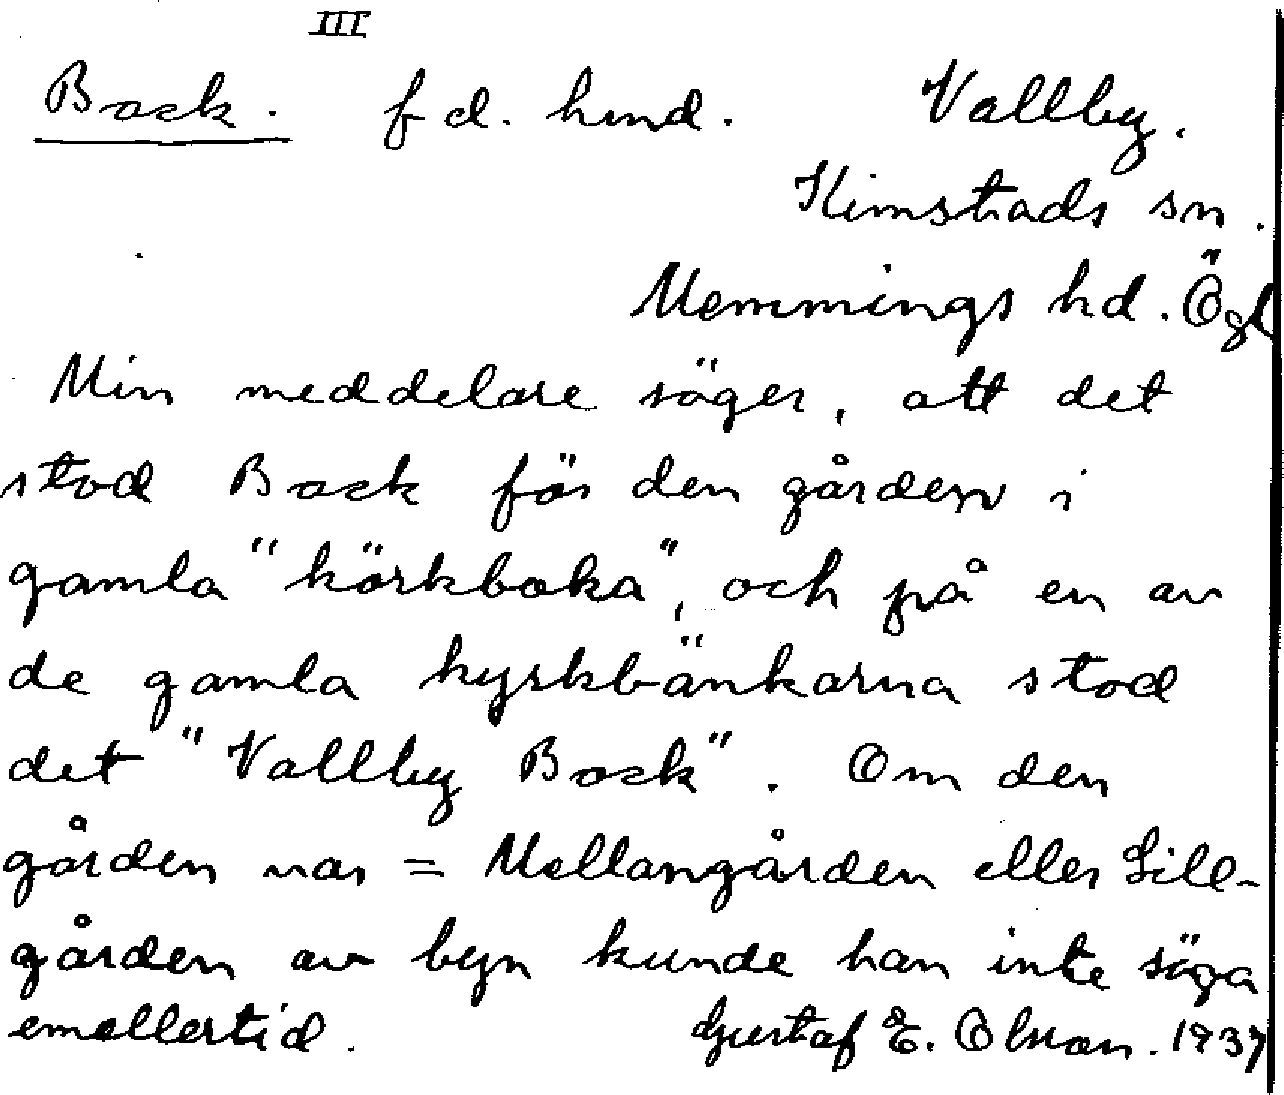 III
Back. fd. hmd. Vallby.
Kimstads sn.
Memmings hd. Ögl
Min meddelare säger, att det
stod Back för den gården i
gamla "körkboka", och på en av
de gamla kyrkbänkarna stod
det "Vallby Back". Om den
gården var = Mellangården eller Lill-
gården av byn kunde han inte säga
emellertid. Gustaf E. Olsson. 1937